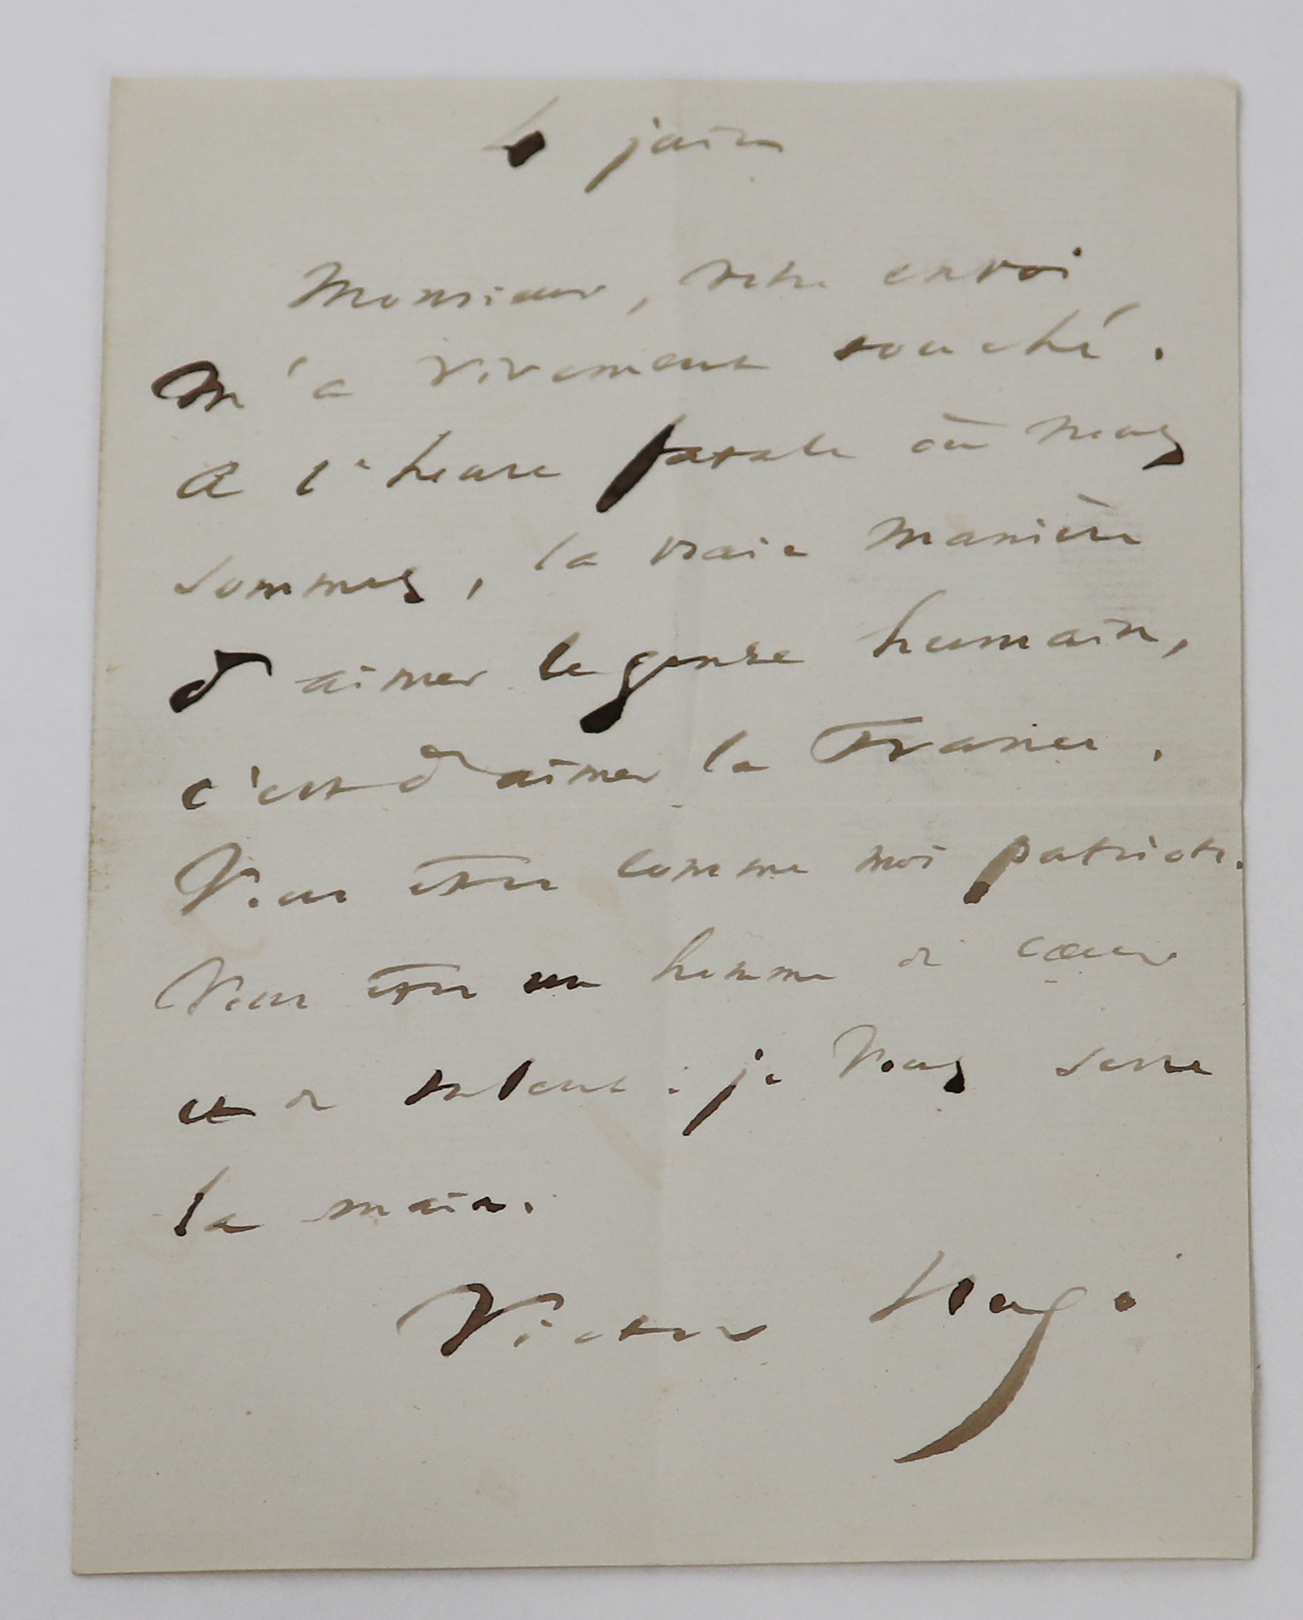 6 juin
Monsieur, votre envoi
m'a vivement touché.
A l'heure fatale où nous
sommes, la vraie manière
d'aimer le genre humain,
c'est d'aimer la France.
Vous êtes comme moi patriote.
Vous êtes un homme de cœur
et de talent. je vous serre
la main.
Victor Hugo